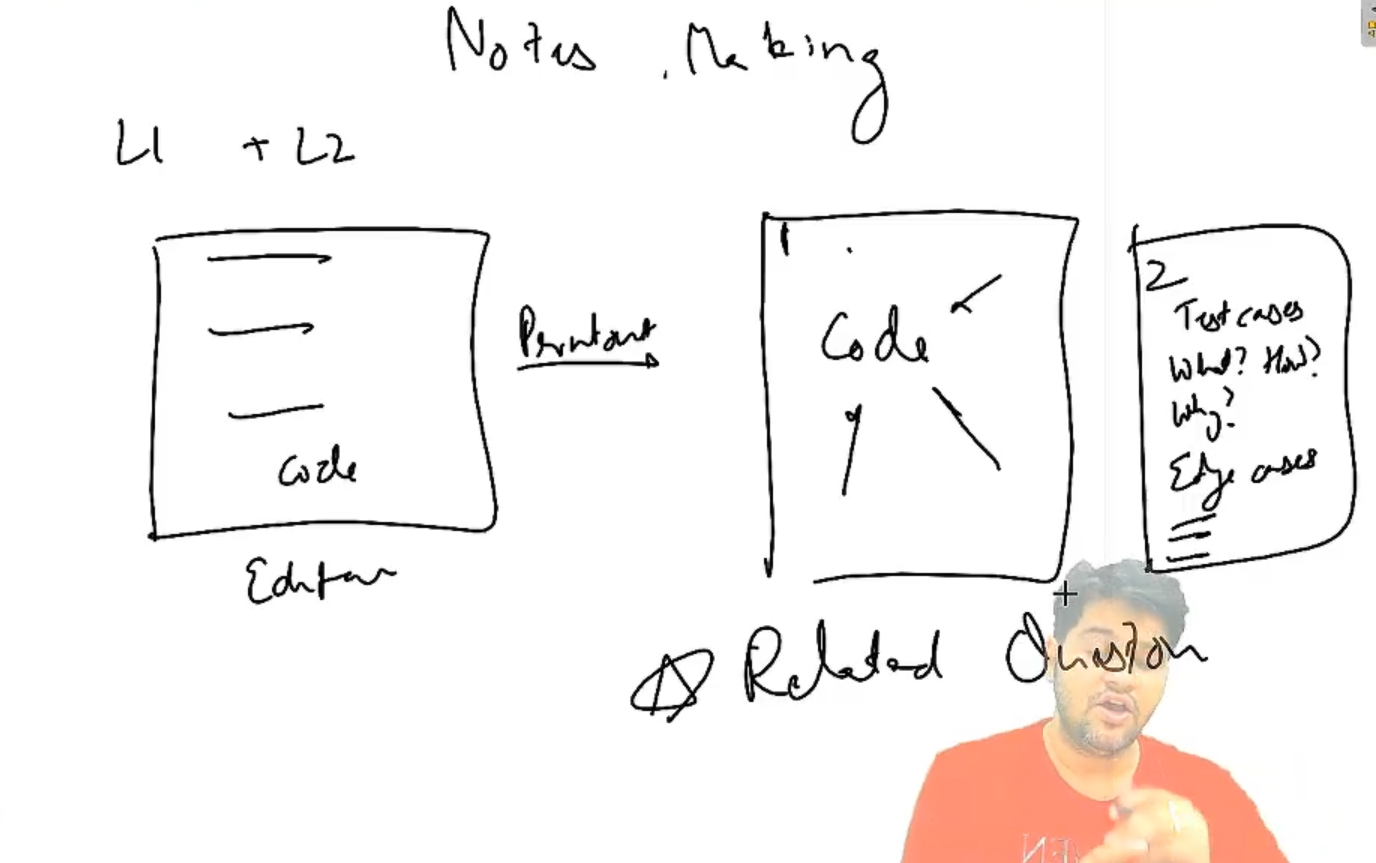 Notes Making
L1 + L2
Code
Editor
Printout
1
Code
2
Test cases
What? How?
Why?
Edge cases
Related Question